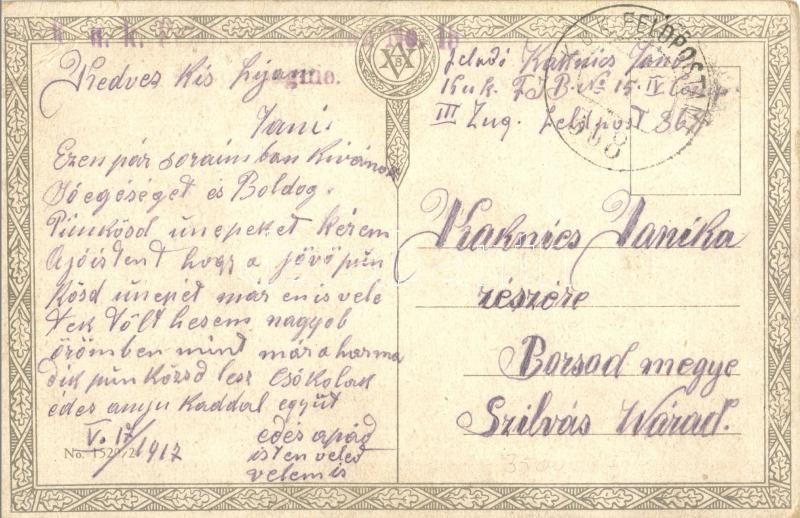 No. 16
Kedves kis fijam
Jani.
Ezen pár soraimban kivánok
Jó egéséget és Boldog.
Pünkösd ünepeket kérem
Ajóistent hogy a jövö pün
kösd ünepét már én is vele
tek Tölt hesem nagyob
örömben mint már a harma
dik pünközsd lesz Csókolak
édes anyu kaddal együt
V. 17/1917
edés apád
isten veled
velem is
No. 1520/2
feladó Kaknics János
K.u.k. F.J.B. No 15. IV.
III Zug. Feldpost 36
FELDPOST
Kaknics Janika
részére
Borsod megye
Szilvás Várad.